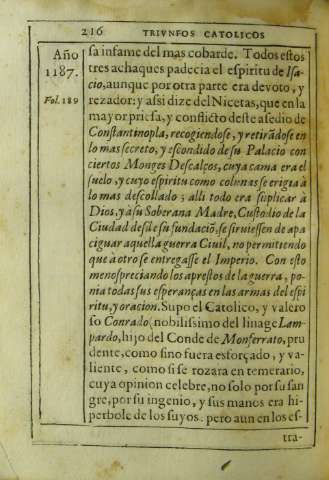 216 TRIVNFOS CATOLICOS
Año
1187.
Fol. 189
sa infame del mas cobarde. Todos estos
tres achaques padecia el espiritu de Isa-
cio, aunque por otra parte era devoto, y
rezador: y assi dize del Nicetas, que en la
mayor priesa, y conflicto deste asedio de
Constantinopla, recogiendose, y retirãdose en
lo mas secreto, y escondido de su Palacio con
ciertos Monges Descalços, cuya cama era el
suelo, y cuyo espiritu como colunas se erigia à
lo mas descollado; alli todo era suplicar à
Dios, y à su Soberana Madre, Custodio de la
Ciudad desde su fundaciõ, se sirviessen de apa
ciguar aquella guerra Civil, no permitiendo
que à otro se entregasse el Imperio. Con esto
menospreciando los aprestos de la guerra, po-
nia todas sus esperanças en las armas del espi
ritu, y oracion. Supo el Catolico, y valero
so Conrado (nobilissimo del linage Lam-
pardo, hijo del Conde de Monferrato, pru
dente, como sino fuera esforçado, y va-
liente, como si se rozara en temerario,
cuya opinion celebre, no solo por su san
gre, por su ingenio, y sus manos era hi-
perbole de los suyos. pero aun en los es-
tra-